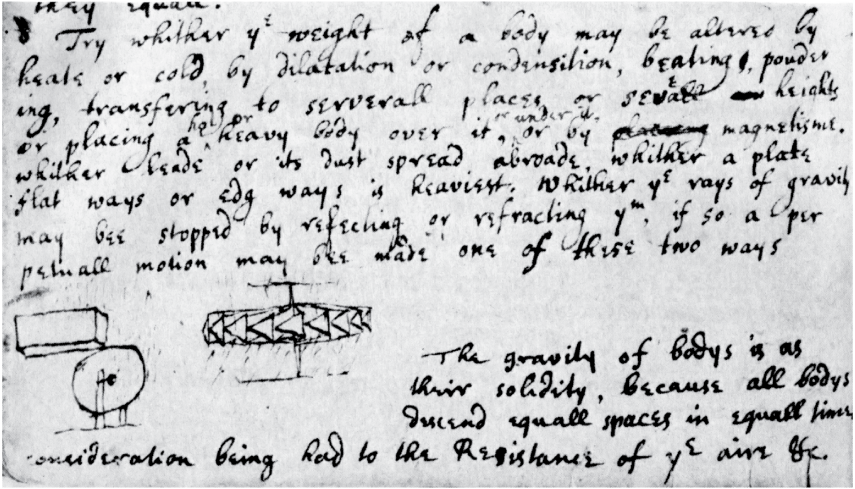 they equall.
Try whither yᵉ weight of a body may be altered by
heate or cold, by dilatation or condensition, beating, powder
ing, transferring to serverall places or severall heights
or placing a hot or heavy body over it, or under it, or by magnetisme.
whither leade or its dust spread abroade, whither a plate
flat ways or edg ways is heaviest. Whither yᵉ rays of gravity
may bee stopped by reflecting or refracting yᵐ, if so a per
petuall motion may bee made one of these two ways
The gravity of bodys is as
their solidity, because all bodys
descend equall spaces in equall times
consideration being had to the Resistance of yᵉ aire &c.